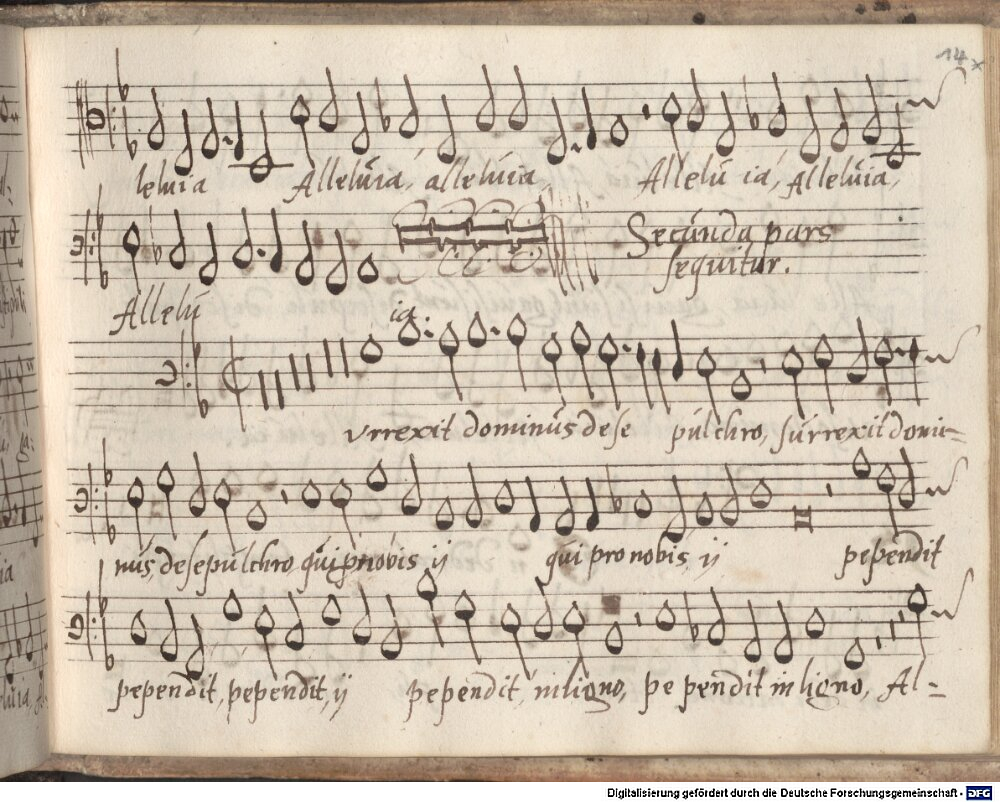 14
leluia Alleluia, alleluia, Allelu ia, Alleluia,
Secunda pars
sequitur.
Allelu ia.
urrexit dominus de se pulchro, surrexit domi-
nus de sepulchro qui pnobis ij qui pro nobis ij pependit
pependit, pependit, ij pependit, in ligno, pe pendit in ligno, Al-
Digitalisierung gefördert durch die Deutsche Forschungsgemeinschaft - DFG